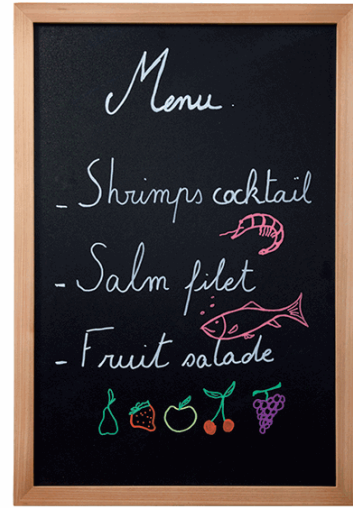 Menu.
- Shrimps cocktaïl
- Salm filet
- Fruit salade